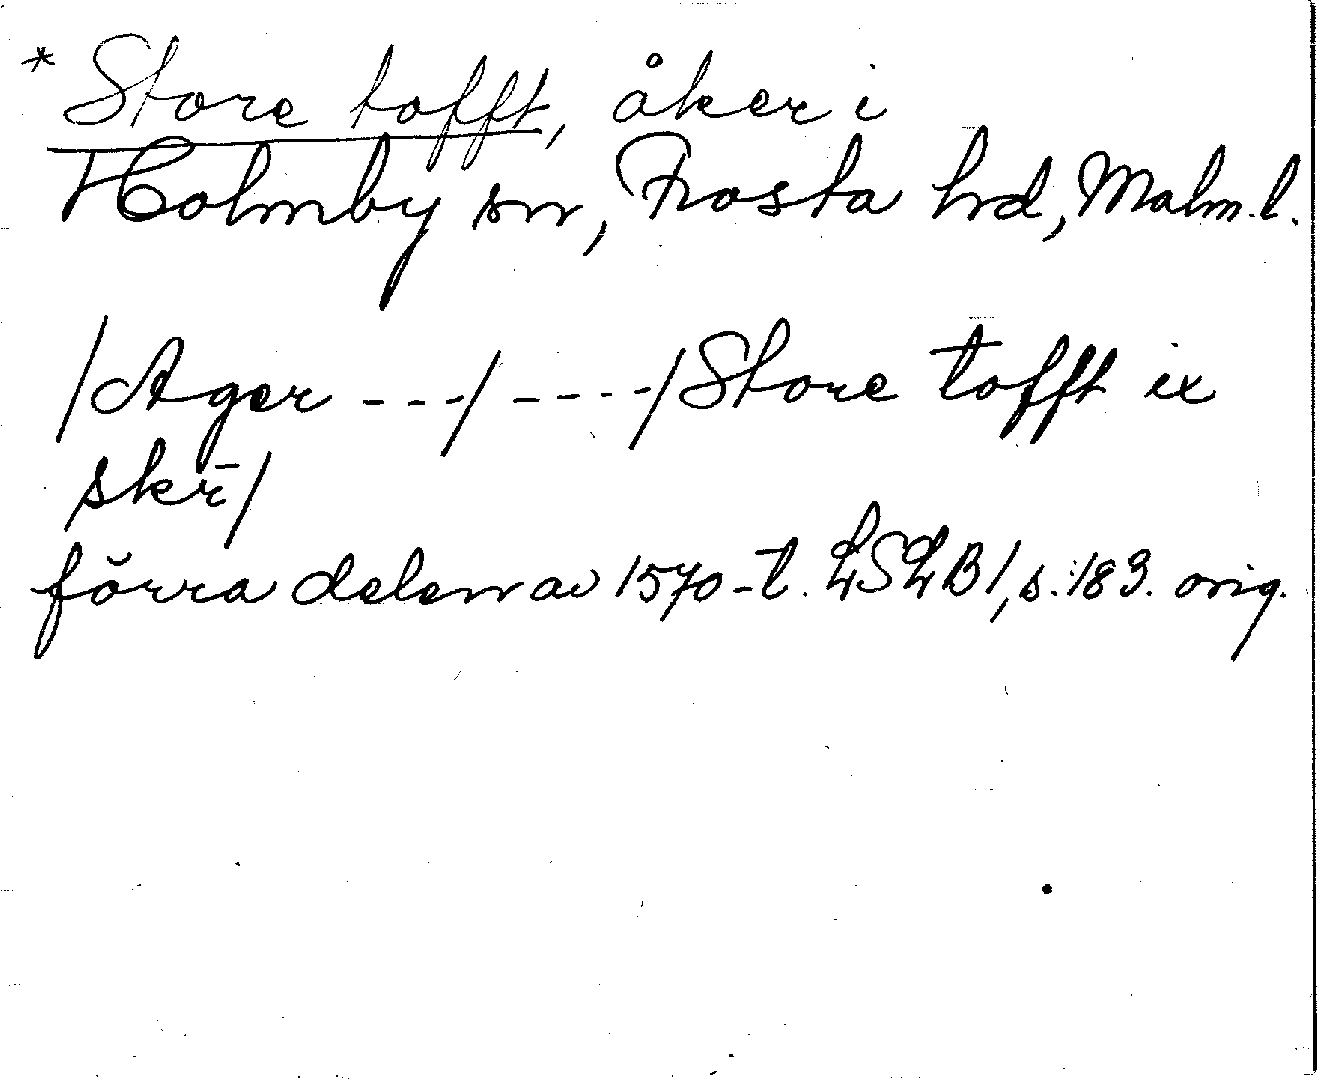 * Store tofft, åker i
Holmby sn, Frosta hd, Malm. l.
/Ager ---/ ----/Store tofft ix
skr̄/
förra delen av 1570-t. LSLB 1, s. 183. orig.